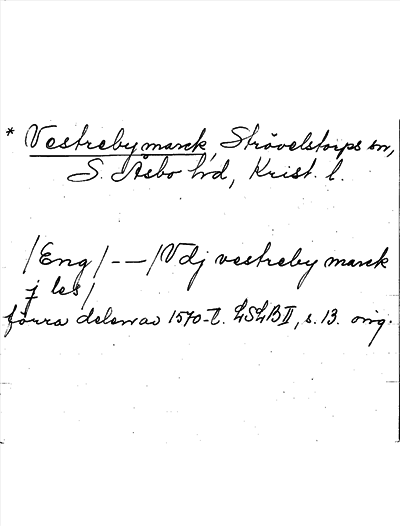 * Vestreby marck, Strövelstorps sn,
S. Åsbo hd, Krist. l.
/Eng/--/Vdj vestreby marck
j les/
förra delen av 1570-t. LSLB II, s. 13. orig.